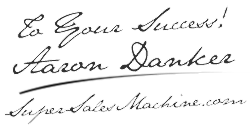 To Your Success!
Aaron Danker
SuperSalesMachine.com